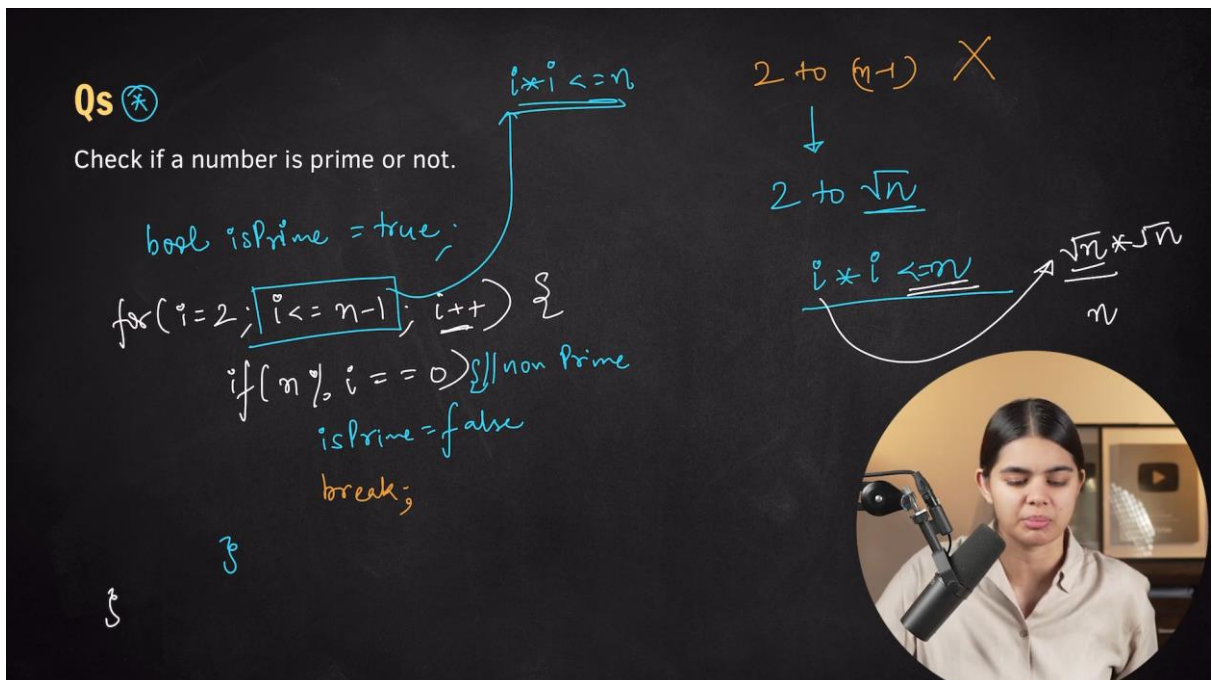 Qs *
Check if a number is prime or not.
i*i <=n
bool isPrime = true;
for(i=2; i<= n-1; i++) {
if(n % i == 0) { // non Prime
isPrime = false
break;
}
}
2 to (n-1) X
2 to √n
i * i <=n
√n * √n
n